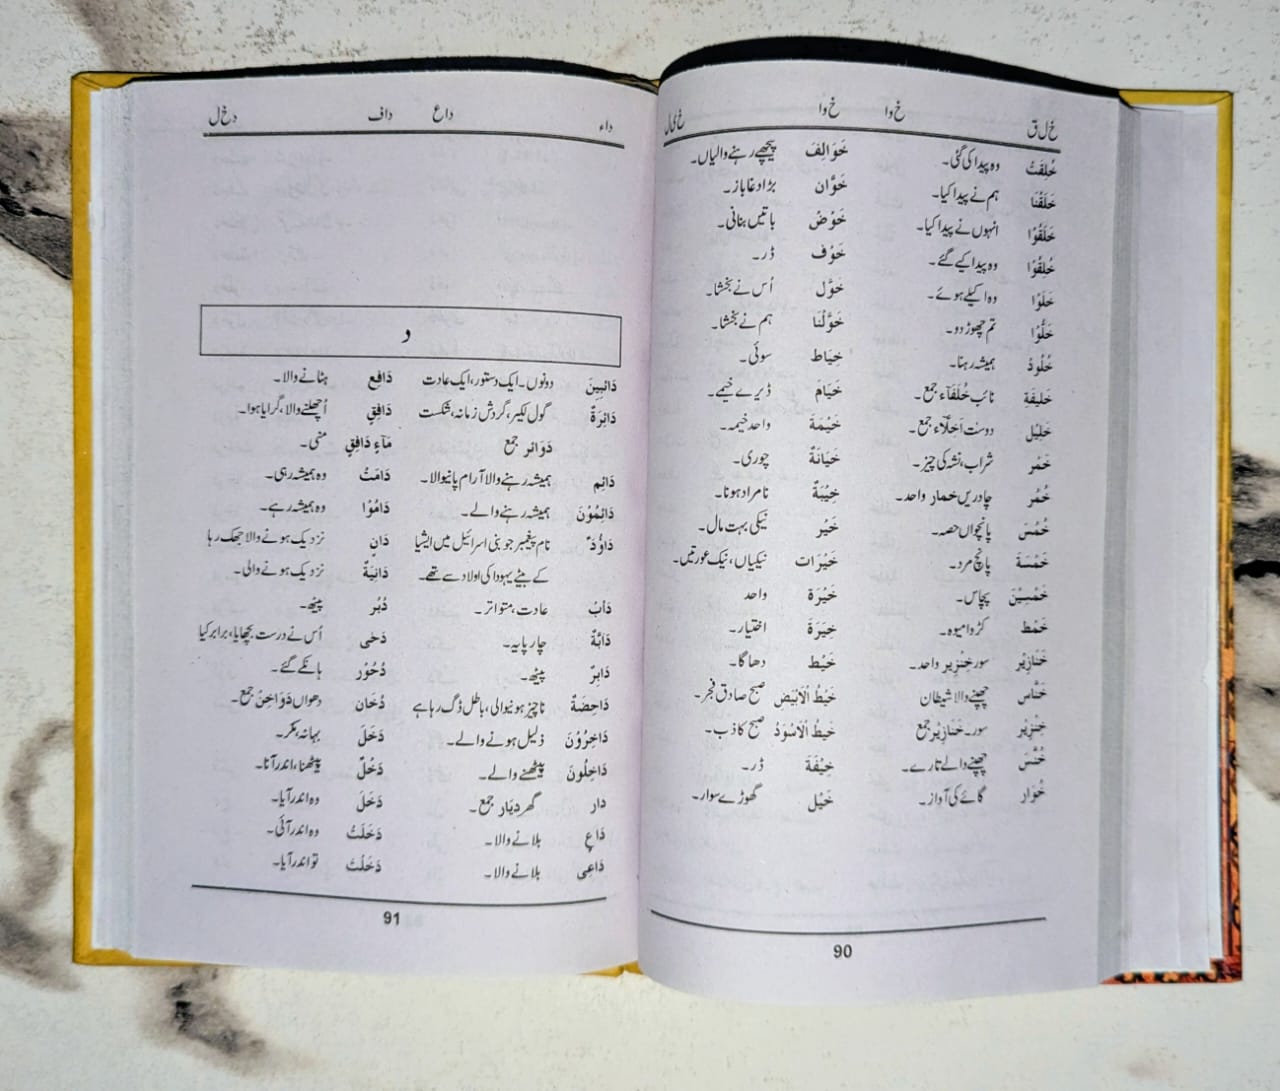 خ ل ق
خ و ا
خُلِقَتْ وہ پیدا کی گئی۔
خَلَقْنَا ہم نے پیدا کیا۔
خَلَقُوْا انہوں نے پیدا کیا۔
خُلِقُوْا وہ پیدا کیے گئے۔
خَلَوْا وہ اکیلے ہوئے۔
خَلُّوْا تم چھوڑ دو۔
خُلُودُ ہمیشہ رہنا۔
خَلِيفَةِ نائب خُلَفَآء جمع۔
خَلِيْل دوست اَخِلَّاء جمع۔
خَمْر شراب، نشہ کی چیز۔
خُمُر چادریں خمار واحد۔
خُمُسَ پانچواں حصہ۔
خَمْسَةَ پانچ مرد۔
خَمْسِيْنَ پچاس۔
خَمْط کڑوا میوہ۔
خَنَازِيْر سور خِنْزِیر واحد۔
خَنَّاس چھپنے والا شیطان
خِنْزِيْر سور۔ خَنَازِیْر جمع
خُنَّس چھپنے والے تارے۔
خُوَار گائے کی آواز۔
خ و ا
خ ی ل
خَوَالِفَ پیچھے رہنے والیاں۔
خَوَّان بڑا دغا باز۔
خَوْضُ باتیں بنانی۔
خَوْف ڈر۔
خَوَّل اُس نے بخشا۔
خَوَّلْنَا ہم نے بخشا۔
خِيَاط سوئی۔
خِيَام ڈیرے خیمے۔
خَيْمَةَ واحد خیمہ۔
خَيَانَةٌ چوری۔
خَيْبَةٌ نامراد ہونا۔
خَيْر نیکی بہت مال۔
خَيْرَات نیکیاں، نیک عورتیں۔
خَيْرَة واحد
خِيَرَةَ اختیار۔
خَيْط دھاگا۔
خَيْطُ الْاَبْيَضِ صبح صادق فجر۔
خَيطُ الْاَسْوَدُ صبح کاذب۔
خِيْفَةَ ڈر۔
خَيْل گھوڑے سوار۔
90
داء
داع
داف
دخل
د
دَائِبِينَ دونوں۔ ایک دستور، ایک عادت
دَائِرَةٌ گول لکیر، گردش زمانہ، شکست
دَوَائر جمع
دَائِم ہمیشہ رہنے والا آرام پانیوالا۔
دَائِمُوْنَ ہمیشہ رہنے والے۔
دَاوٗد نام پیغمبر جو بنی اسرائیل میں ایشیا
کے بیٹے یہودا کی اولاد سے تھے۔
دَأبُ عادت، متواتر۔
دَابَّةٌ چارپایہ۔
دَابِرُ پیٹھ۔
دَاحِضَةٌ ناچیز ہونیوالی، باطل ڈگ رہا ہے
دَاخِرُوْنَ ذلیل ہونے والے۔
دَاخِلُونَ پیٹھنے والے۔
دار گھر دِیَار جمع۔
دَاعِ بلانے والا۔
دَاعِی بلانے والا۔
دَافِع ہٹانے والا۔
دَافِقٍ اُچھلنے والا، گرایا ہوا۔
مَآءٍ دَافِقٍ منی۔
دَامَتْ وہ ہمیشہ رہی۔
دَامُوْا وہ ہمیشہ رہے۔
دَانٍ نزدیک ہونے والا جھک رہا
دَانِيَةٌ نزدیک ہونے والی۔
دُبُر پیٹھ۔
دَحٰى اُس نے درست بچھایا، برابر کیا
دُحُوْر ہانکے گئے۔
دُخَان دھواں دَوَاخِنُ جمع۔
دَخَلَ بہانہ، مکر۔
دُخُلْ پیٹھنا، اندر آنا۔
دَخَلَ وہ اندر آیا۔
دَخَلَتْ وہ اندر آئی۔
دَخَلْتَ تو اندر آیا۔
91